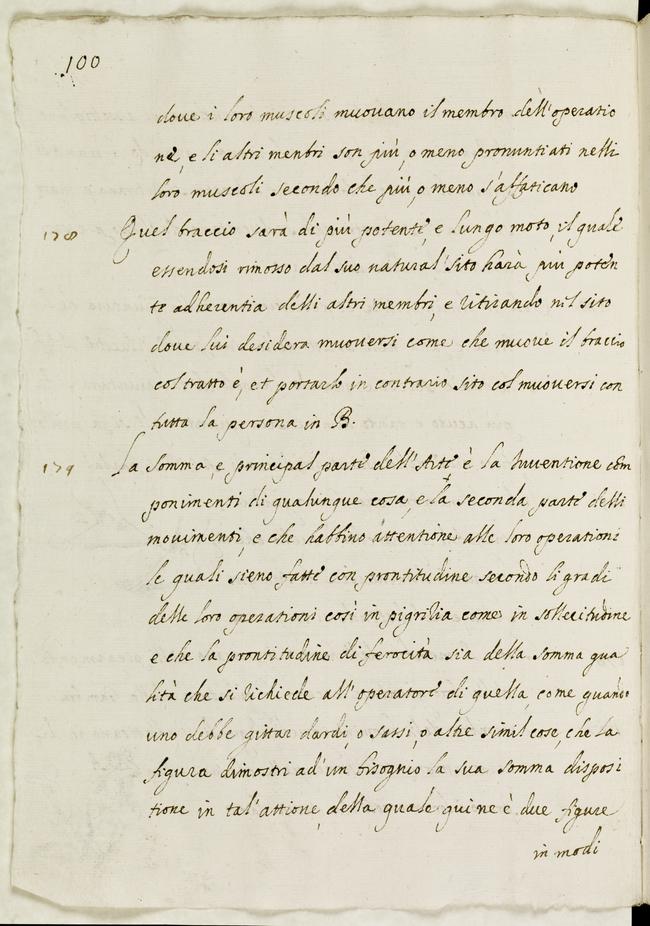 100
dove i loro muscoli muovano il membro dell'operatio
ne, e li altri menbri son più, o meno pronuntiati nelli
loro muscoli secondo che più, o meno s'affaticano
178 Quel braccio sarà di più potente, e lungo moto, il quale
essendosi rimosso dal suo natural sito harà più poten
te adherentia delli altri membri, e ritirando nil sito
dove lui desidera muoversi come che muove il braccio
col tratto è, et portarlo in contrario sito col muoversi con
tutta la persona in B.
179 La somma, e principal parte dell'Arte è la Inventione com
ponimenti di qualunque cosa, e la seconda parte delli
movimenti, e che habbino attentione alle loro operationi
le quali sieno fatte con prontitudine secondo li gradi
delle loro operationi così in pigritia come in sollecitudine
e che la prontitudine di ferocità sia della somma qua
lità che si richiede all'operatore di quella, come quando
uno debbe gittar dardi, o sassi, o altre simil cose, che la
figura dimostri ad'un bisognio la sua somma disposi
tione in tal'attione, della quale qui ne è due figure
in modi